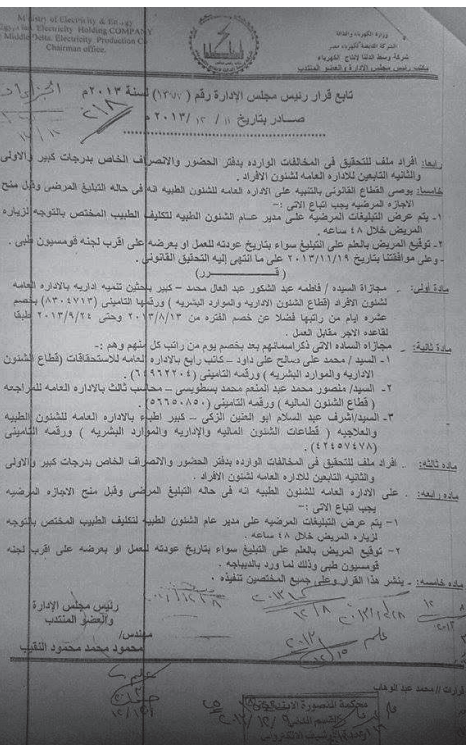 Ministry of Electricity & Energy
Egyptian Electricity Holding COMPANY
Middle Delta Electricity Production Co
Chairman office.
وزارة الكهرباء والطاقة
الشركة القابضة لكهرباء مصر
شركة وسط الدلتا لإنتاج الكهرباء
مكتب رئيس مجلس الإدارة والعضو المنتدب
تابع قرار رئيس مجلس الإدارة رقم ( ١٣٧٢ ) لسنة ٢٠١٣م
صـادر بتاريخ ١١ / ١٢ / ٢٠١٣م
٢١٨
رابعا: افراد ملف للتحقيق فى المخالفات الوارده بدفتر الحضور والانصراف الخاص بدرجات كبير والاولى
والثانيه التابعين للاداره العامه لشئون الافراد .
خامسا: يوصى القطاع القانونى بالتنبيه على الاداره العامه للشئون الطبيه انه فى حاله التبليغ المرضى وقبل منح
الاجازه المرضيه يجب اتباع الاتى :-
١- يتم عرض التبليغات المرضيه على مدير عام الشئون الطبيه لتكليف الطبيب المختص بالتوجه لزياره
المريض خلال ٤٨ ساعه .
٢- توقيع المريض بالعلم على التبليغ سواء بتاريخ عودته للعمل او بعرضه على اقرب لجنه قومسيون طبى .
- وعلى موافقتنا بتاريخ ٢٠١٣/١١/١٩ على ما انتهى اليه التحقيق القانونى .
( قــــــرر )
مادة أولى: . مجازاة السيده / فاطمه عبد الشكور عبد العال محمد – كبير باحثين تنميه اداريه بالاداره العامه
لشئون الأفراد (قطاع الشئون الاداريه والموارد البشريه ) ورقمها التامينى (٨٣٠٤٧١٣) بخصم
عشره ايام من راتبها فضلا عن خصم الفتره من ٢٠١٣/٨/١٣ وحتى ٢٠١٣/٩/٢٤ طبقا
لقاعده الاجر مقابل العمل .
مادة ثانية: . مجازاه الساده الاتى ذكراسمائهم بعد بخصم يوم من راتب كل منهم وهم :-
١- السيد / محمد على صالح على داود – كاتب رابع بالاداره العامه للاستحقاقات (قطاع الشئون
الاداريه والموارد البشريه ) ورقمه التامينى (٦٤٩٦٢٢٠٤) .
٢- السيد/ منصور محمد عبد المنعم محمد بسطويسى – محاسب ثالث بالاداره العامه للمراجعه
( قطاع الشئون الماليه ) ورقمه التامينى (٥٦٦٥٠٨٥٠) .
٣- السيد/اشرف عبد السلام ابو العنين الزكى – كبير اطباء بالاداره العامه للشئون الطبيه
والعلاجيه ( قطاعات الشئون الماليه والإداريه والموارد البشريه ) ورقمه التامينى
(٤٢٤٥٧٤٧٨) .
ماده ثالثه: . افراد ملف للتحقيق فى المخالفات الوارده بدفتر الحضور والانصراف الخاص بدرجات كبير والاولى
والثانيه التابعين للاداره العامه لشئون الافراد .
ماده رابعه: . على الاداره العامه للشئون الطبيه انه فى حاله التبليغ المرضى وقبل منح الاجازه المرضيه
يجب اتباع الاتى :-
١- يتم عرض التبليغات المرضيه على مدير عام الشئون الطبيه لتكليف الطبيب المختص بالتوجه
لزياره المريض خلال ٤٨ ساعه .
٢- توقيع المريض بالعلم على التبليغ سواء بتاريخ عودته للعمل او بعرضه على اقرب لجنه
قومسيون طبى وذلك لما ورد بالديباجه .
ماده خامسه: . ينشر هذا القرار وعلى جميع المختصين تنفيذه .
رئيس مجلس الإدارة
والعضو المنتدب
مهندس/
محمود محمد محمود النقيب
محمد عبد الوهاب
محكمة المنصورة الابتدائية